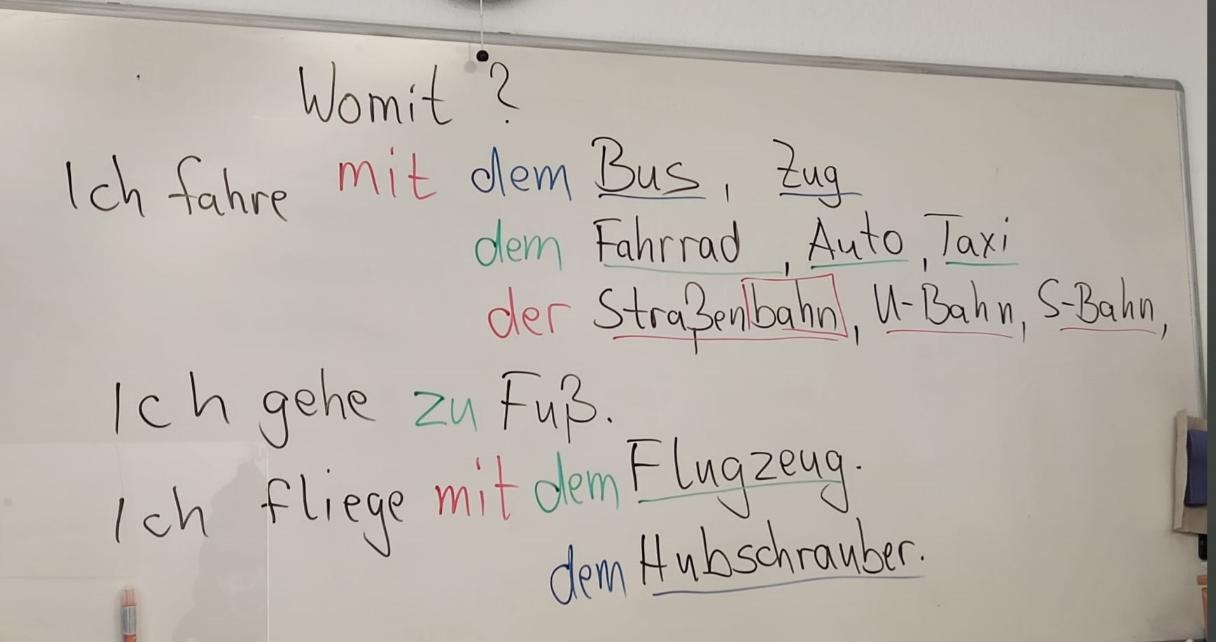 Womit?
Ich fahre mit dem Bus, Zug
dem Fahrrad, Auto, Taxi
der Straßenbahn, U-Bahn, S-Bahn,
Ich gehe zu Fuß.
Ich fliege mit dem Flugzeug.
dem Hubschrauber.